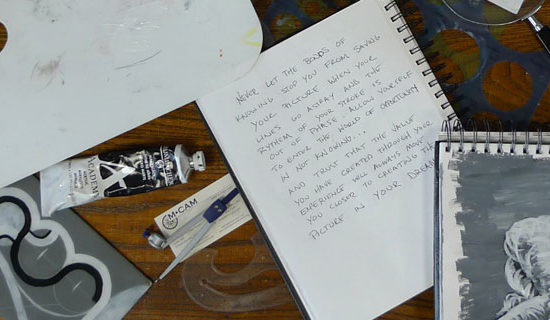 NEVER LET THE BONDS OF
KNOWING STOP YOU FROM SAVING
YOUR PICTURE WHEN YOUR
LINES GO ASTRAY AND THE
RYTHEM OF YOUR STROKE IS
OUT OF PHASE. ALLOW YOURSELF
TO ENTER THE WORLD OF OPORTUNITY
IN NOT KNOWING...
AND TRUST THAT THE VALUE
YOU HAVE CREATED THROUGH YOUR
EXPERIENCE WILL ALWAYS MOVE
YOU CLOSER TO CREATING THE
PICTURE IN YOUR DREAM
ACADEMY
M•CAM